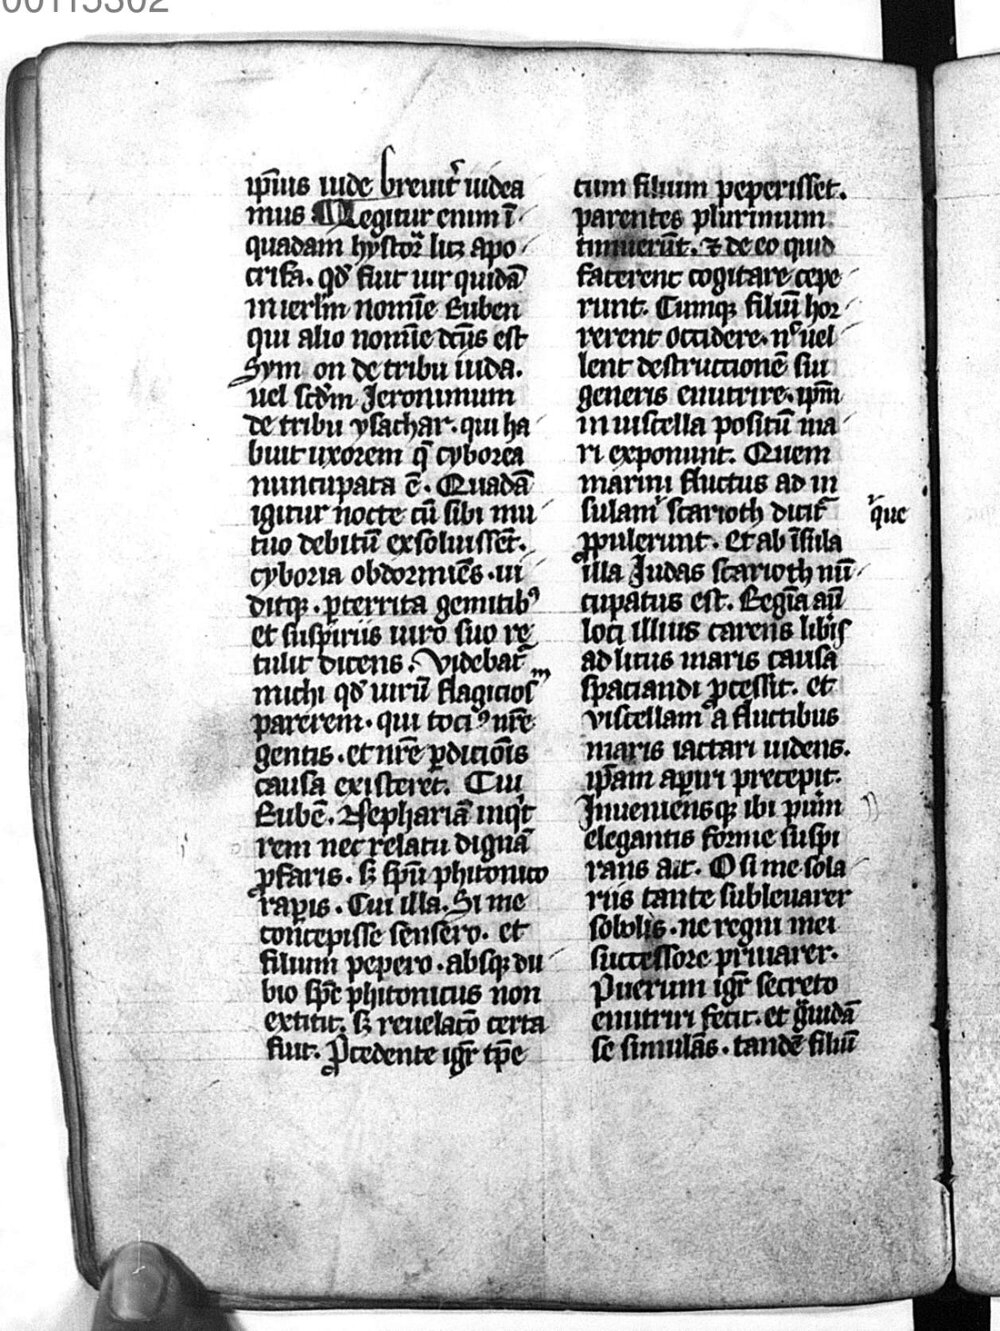 00115302
ip̄ius iude breuit᷑ uidea
mus Legitur enim ī
quadam hystor᷑ lꝫ apo
crifa. qđ fuit uir quidā
in ierl̄m nomīe Ruben
qui alio nomīe dc̄us est
Sym on de tribu iuda.
uel scđm Jeronimum
de tribu ysachar. qui ha
buit uxorem q̄ cyborea
nuncupata ē. Quadā
igitur nocte cū sibi mu
tuo debitū exsoluissēt.
cyboria obdormiēs. ui
ditqꝫ. ꝑterrita gemitibꝰ
et suspiriis uiro suo re
tulit dicens. Videbat᷑
michi qđ uirū flagicios
parerem. qui tociꝰ nr̄e
gentis. et nr̄e ꝑdiciōis
causa existeret. Cui
Rubē. Nephariā inqͥt
rem nec relatu dignā
ꝓfaris. sꝫ sp̄u phitonico
raꝑis. Cui illa. Si me
concepisse sensero. et
filium pepero. absqꝫ du
bio sp̄c phitonicus non
extitit. sꝫ reuelac̄o certa
fuit. Ꝓcedente igr̄ tp̄e
cum filium peperisset.
parentes plurimum
timuerūt. ⁊ de eo quid
facerent cogitare cepe
runt. Cumqꝫ filiū hor
rerent occidere. nͨ uel
lent destructionē sui
generis enutrire. ip̄m
in uiscella positū ma
ri exponunt. Quem
marini fluctus ad in
sulam scarioth dicit᷑
que
ꝓpulerunt. Et ab īsula
illa Judas scarioth nū
cupatus est. Regīa aū
loci illius carens lib̾is
ad litus maris causa
spaciandi ꝓcessit. et
viscellam a fluctibus
maris iactari uidens.
ip̄am aꝑiri precepit.
Inueniensqꝫ ibi puēr
elegantis forme suspi
rans ait. O si me sola
riis tante subleuarer
sobolis. ne regni mei
successore priuarer.
Puerum igr̄ secreto
enutriri fecit. et gͣuidā
se simulās. tandē filiū